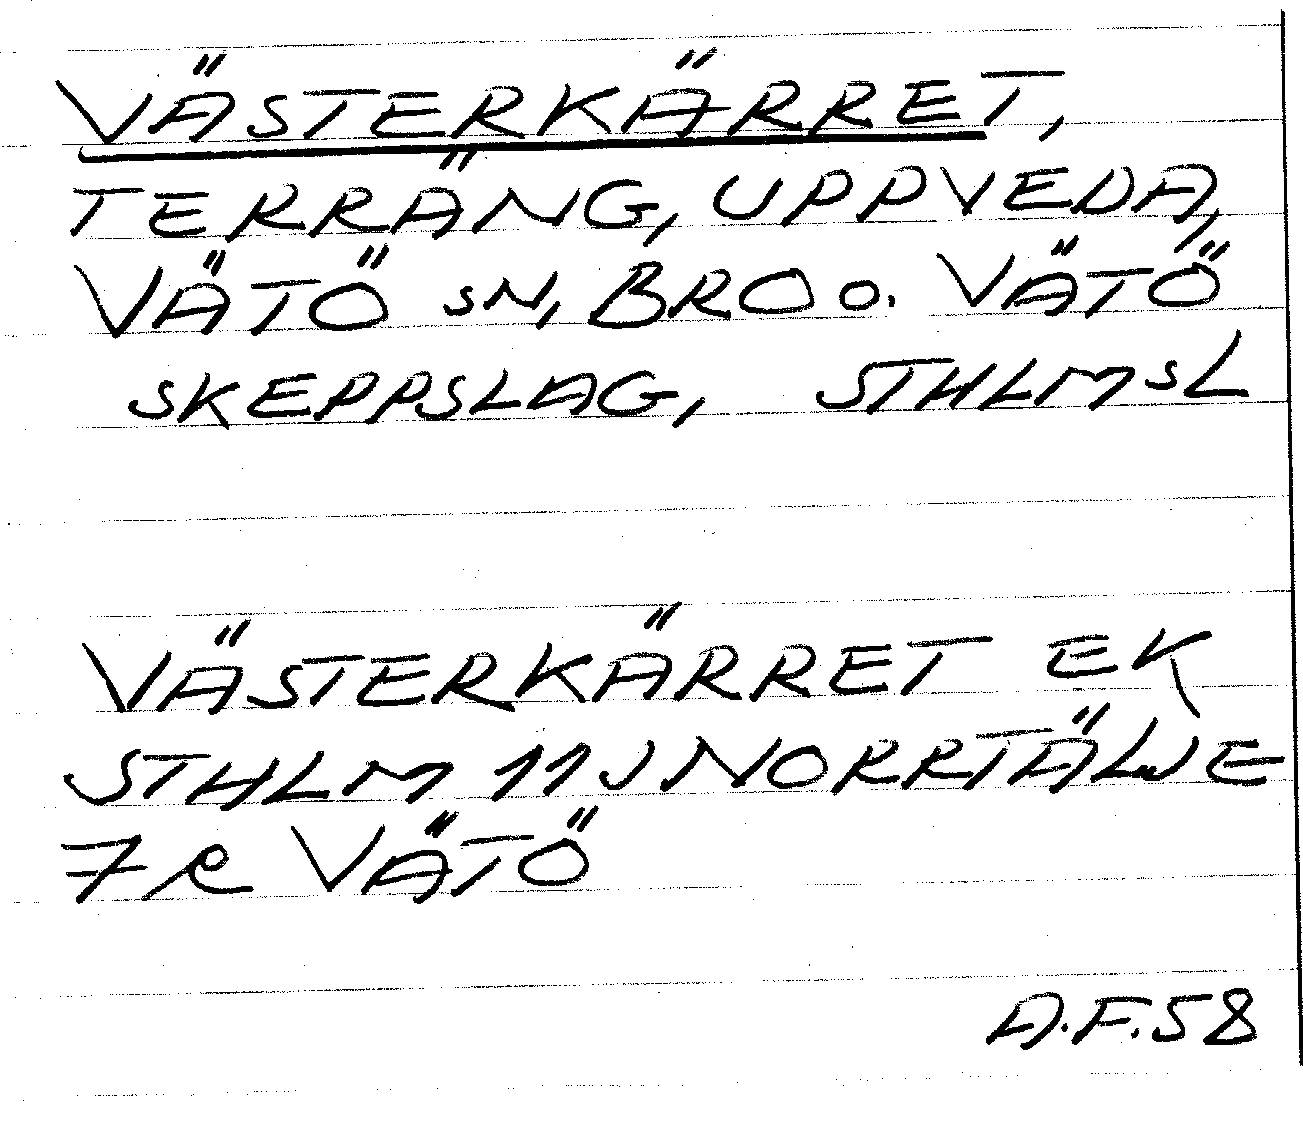 VÄSTERKÄRRET,
TERRÄNG, UPPVEDA,
VÄTÖ SN, BRO O. VÄTÖ
SKEPPSLAG, STHLMSL
VÄSTERKÄRRET EK
STHLM 11J NORRTÄLJE
7R VÄTÖ
A.F.58